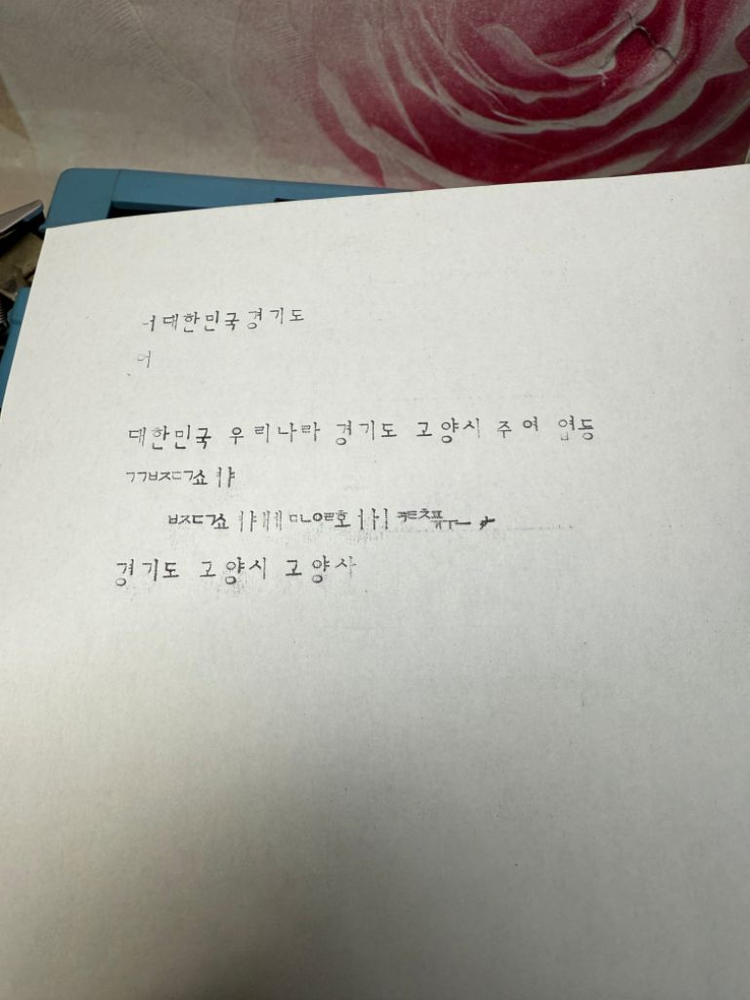 ㅓ대한민국경기도
어
대한민국 우리나라 경기도 고양시 주여 엽동
ㄱㄱㅂㅈㄷㄱ쇼ㅑ
ㅂㅈㄷㄱ쇼ㅑㅐㅔㅁㄴㅇㄹ호ㅓㅏㅣㅋㅌㅊ퓨ㅜㅡ
경기도 고양시 고양사